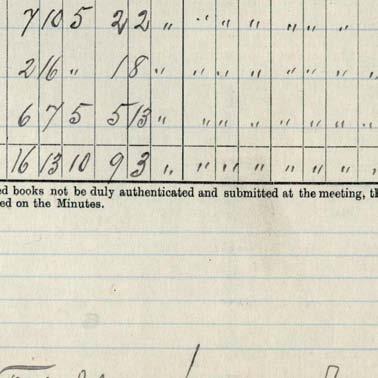 7 10 5 2 2 " " " " " " "
2 16 " 1 8 " " " " " " " "
6 7 5 5 13 " " " " " " " "
16 13 10 9 3 " " " " " " " "
ed books not be duly authenticated and submitted at the meeting, th
ed on the Minutes.